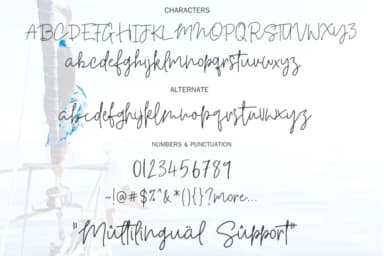 CHARACTERS
ABCDEFGHIJKLMNOPQRSTUVWXYZ
abcdefghijklmnopqrstuvwxyz
ALTERNATE
abcdefghijklmnopqrstuvwxyz
NUMBERS & PUNCTUATION
0123456789
~!@#$%^&*(){}?more...
"Müttilinguäl Süpport"